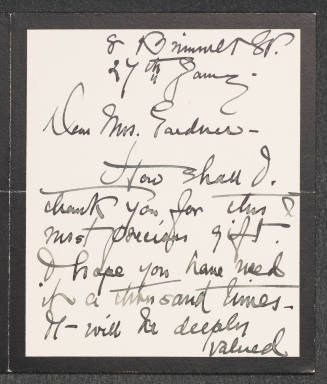 8 Brimmer St.
27th Janry.
Dear Mrs. Gardner –
How shall I
thank you for this
most precious gift.
I hope you have need
it a thousand times –
It – will be deeply
valued